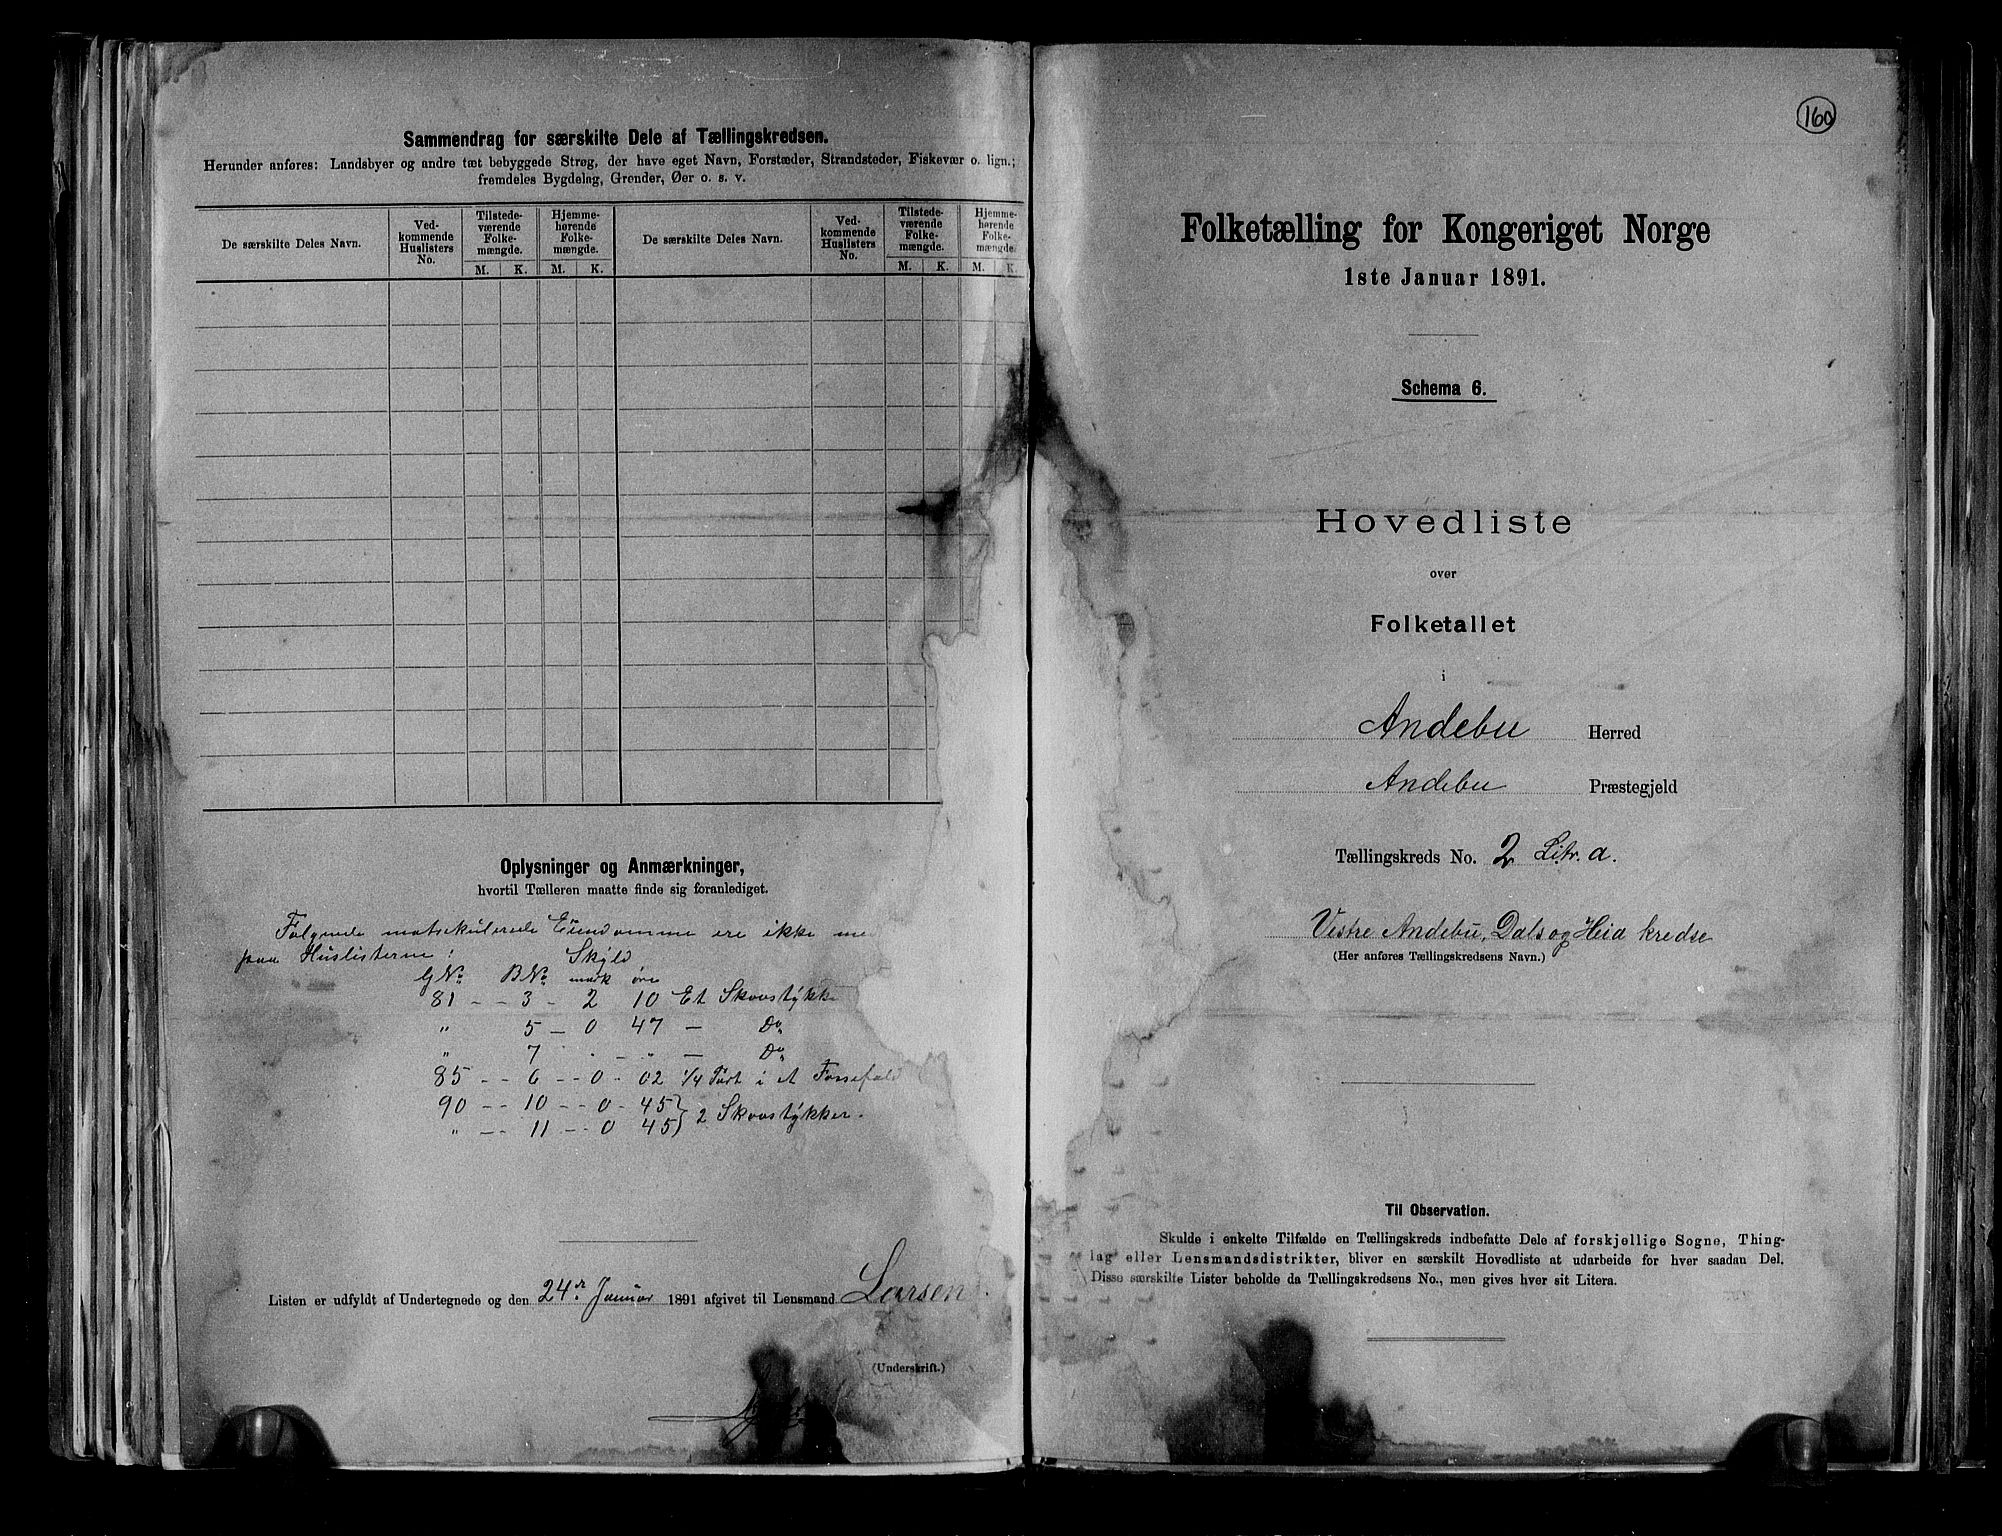 Sammendrag for særskilte Dele af Tællingskredsen.
Herunder anføres: Landsbyer og andre tæt bebyggede Strøg, der have eget Navn, Forstæder, Strandsteder, Fiskevær o. lign.;
fremdeles Bygdelag, Grender, Øer o. s. v.
De særskilte Deles Navn.
Ved-
kommende
Huslisters
No.
Tilstede-
værende
Folke-
mængde.
M. K.
Hjemme-
hørende
Folke-
mængde.
M. K.
De særskilte Deles Navn.
Ved-
kommende
Huslisters
No.
Tilstede-
værende
Folke-
mængde.
M. K.
Hjemme-
hørende
Folke-
mængde.
M. K.
Oplysninger og Anmærkninger,
hvortil Tælleren maatte finde sig foranlediget.
Følgende matrikulerede Eiendomme ere ikke med
paa Huslisterne: Skyld
G.No. B.No. mark øre
81 - - 3 - 2 10 Et Skovstykke
" 5 - 0 47 - Do
" 7 " - " - Do
85 - - 6 - - 0 - 02 1/4 Part i et Fossefald
90 - - 10 - - 0 - 45 } 2 Skovstykker.
" - - 11 - - 0 45 }
Listen er udfyldt af Undertegnede og den 24de Januar 1891 afgivet til Lensmand Larsen.
(Underskrift.)
160
Folketælling for Kongeriget Norge
1ste Januar 1891.
Schema 6.
Hovedliste
over
Folketallet
i
Andebu Herred
Andebu Præstegjeld
Tællingskreds No. 2 Litr. a.
Vestre Andebu, Dals og Heia kredse
(Her anføres Tællingskredsens Navn.)
Til Observation.
Skulde i enkelte Tilfælde en Tællingskreds indbefatte Dele af forskjellige Sogne, Thing-
lag eller Lensmandsdistrikter, bliver en særskilt Hovedliste at udarbeide for hver saadan Del.
Disse særskilte Lister beholde da Tællingskredsens No., men gives hver sit Litera.